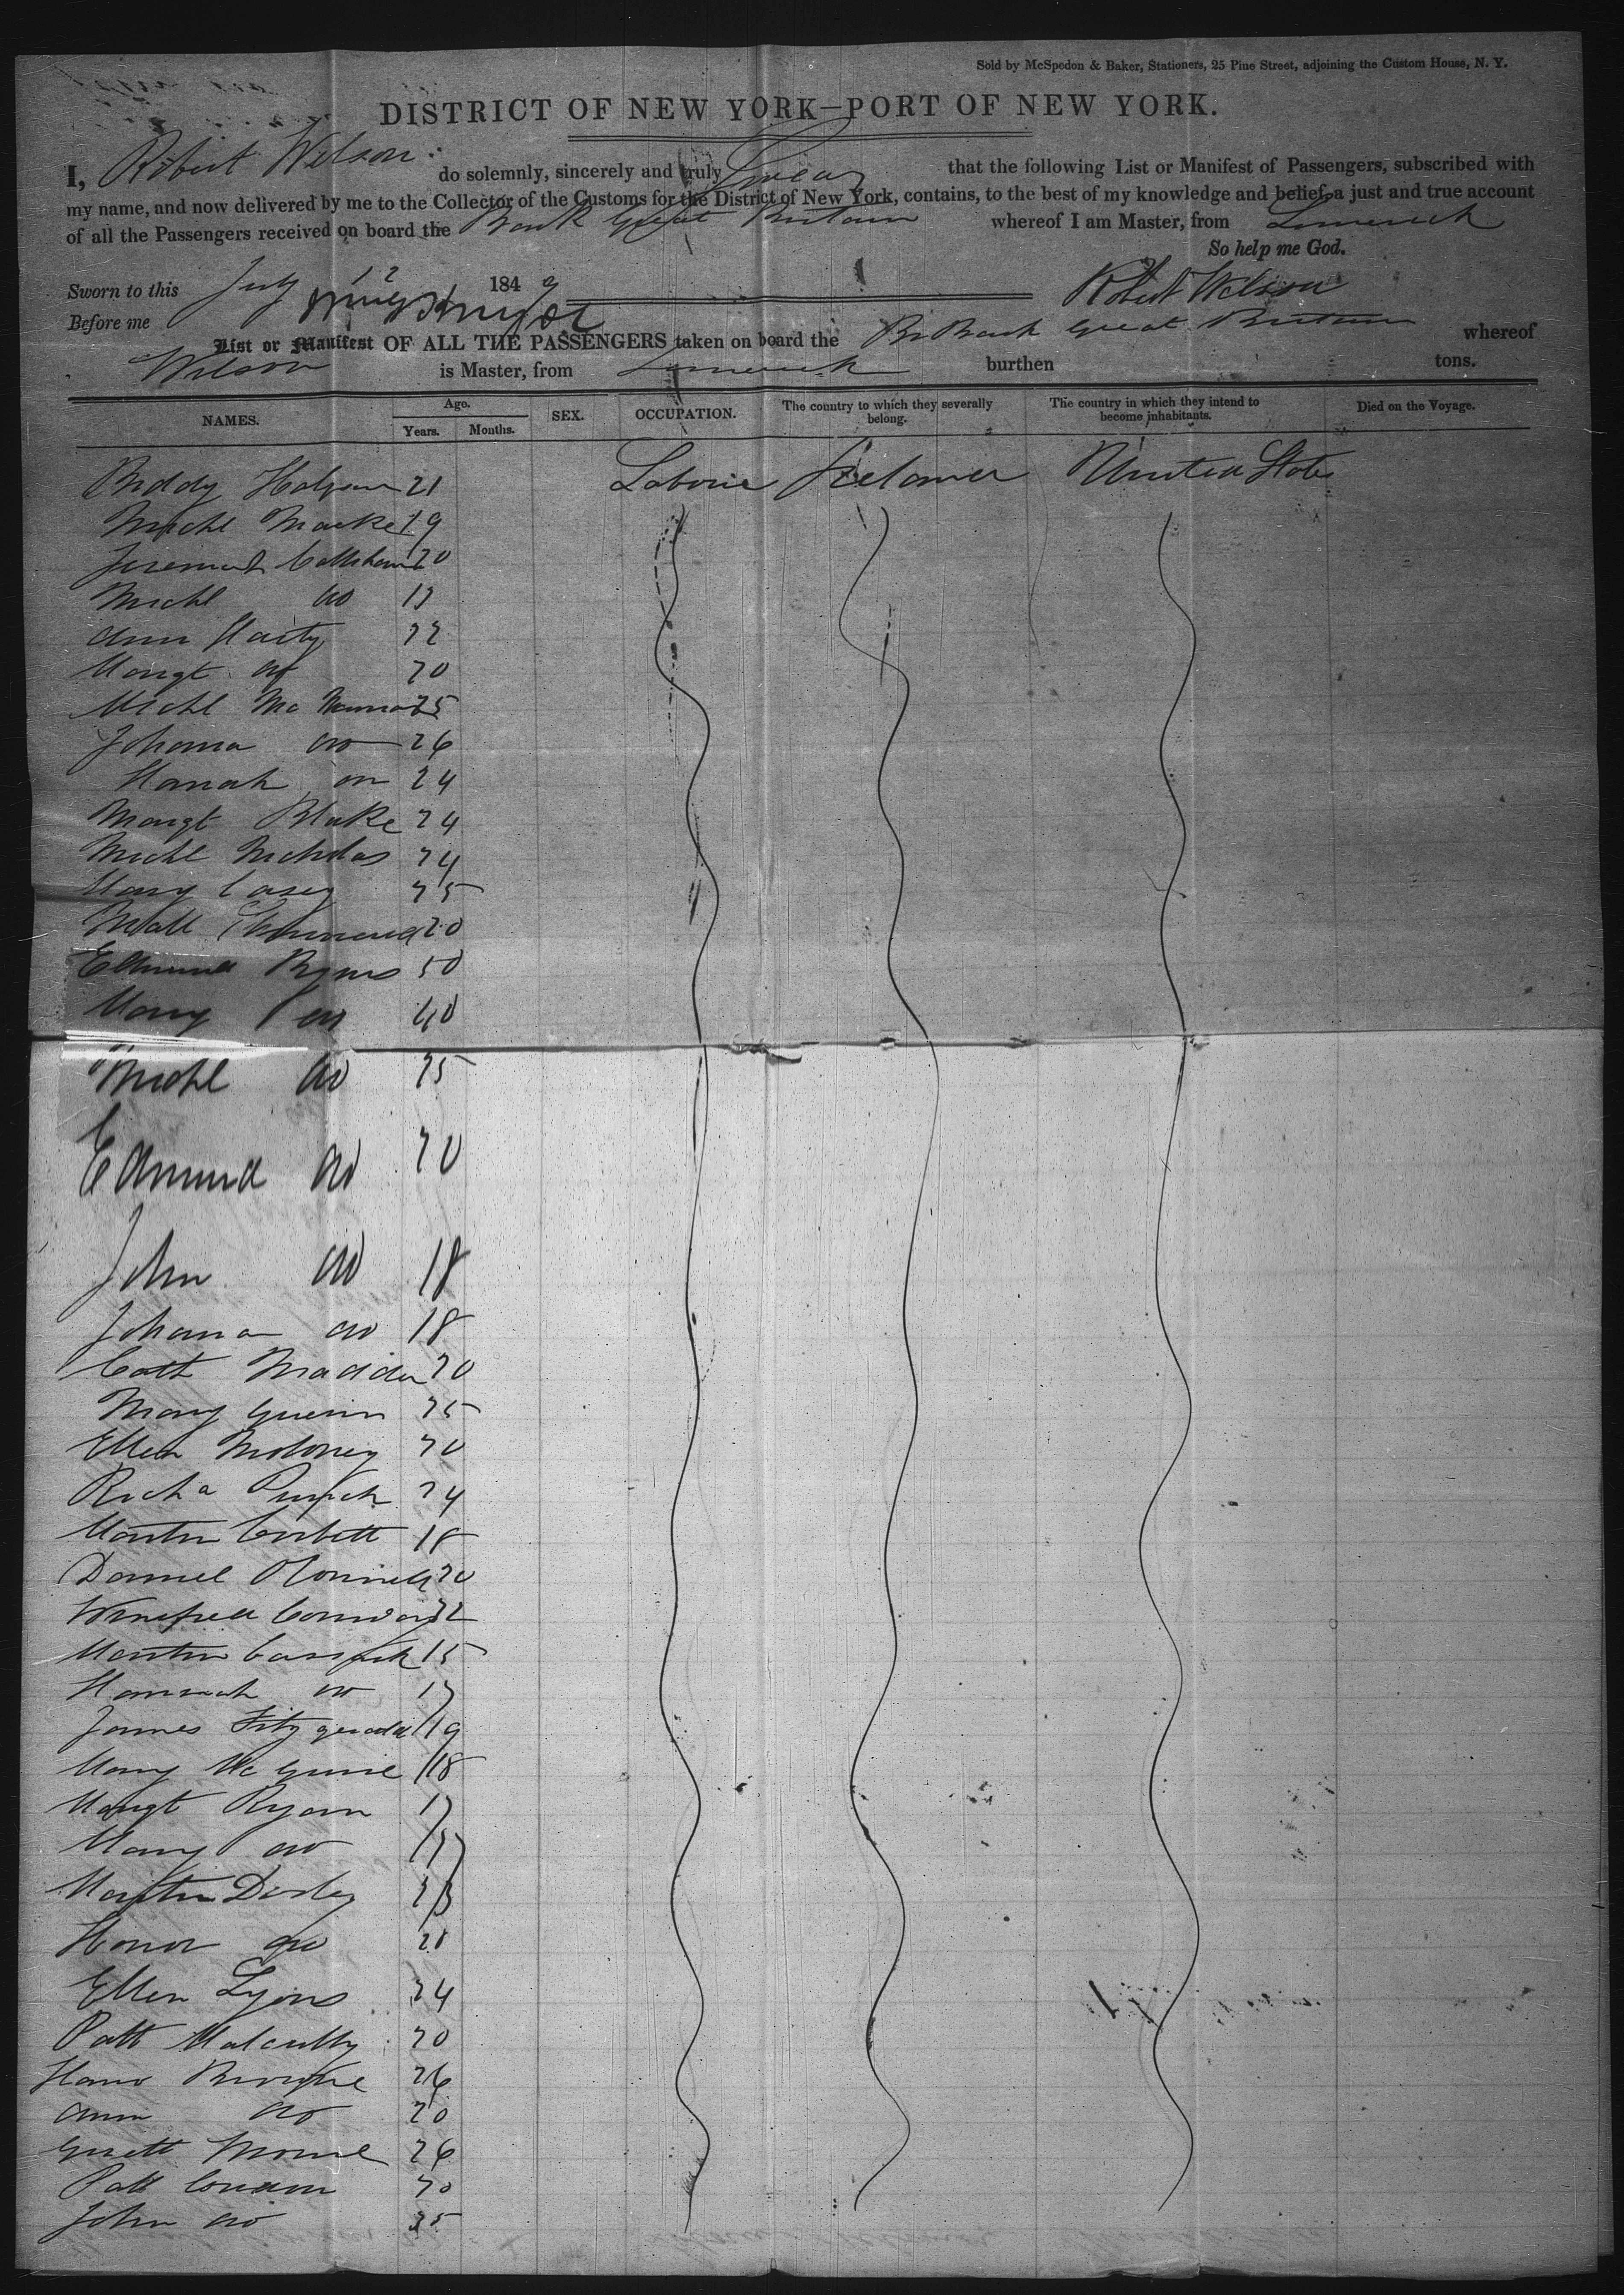 Sold by McSpedon & Baker, Stationers, 25 Pine Street, adjoining the Custom House, N. Y.
DISTRICT OF NEW YORK—PORT OF NEW YORK.
I, Robert Wilson do solemnly, sincerely and truly Swear that the following List or Manifest of Passengers, subscribed with
my name, and now delivered by me to the Collector of the Customs for the District of New York, contains, to the best of my knowledge and belief, a just and true account
of all the Passengers received on board the Bark Great Britain whereof I am Master, from Limerick
So help me God.
Sworn to this July 12 1849 Robert Wilson
Before me
List or Manifest OF ALL THE PASSENGERS taken on board the Br Bark Great Britain whereof
Wilson is Master, from Limerick burthen tons.
NAMES. Age. Years. Months. SEX. OCCUPATION. The country to which they severally belong. The country in which they intend to become inhabitants. Died on the Voyage.
Biddy 21 Laborer Ireland United States
Michl 19
Jeremiah Callahan 20
Michl do
Ann Harty 22
Margt do 20
Michl Mc 25
Johana do 26
Hanah do 24
Margt Blake 24
Michl Nicholas 24
Mary Casey 25
20
Edmund 50
Mary do 40
Michl do 25
Edmund do 20
John do 18
Johana do 18
Cath Madden 20
Mary Guerin 25
Ellen Moloney 20
Richd Punch 24
Martin Corbett 18
Daniel OConnell 20
Winefred 22
Martin 15
Hannah do 17
James Fitzgerald 19
Mary McGuire 18
Margt Ryan 17
Mary do
Martin
Honor do 20
Ellen Lyons 24
Patt 20
26
Ann do 20
26
Patt 20
John do 25